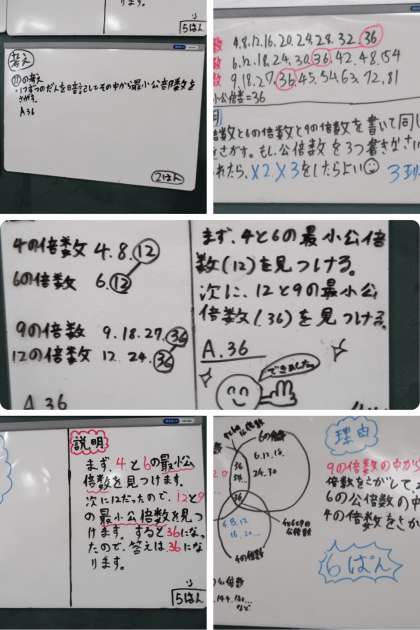 ります。
5はん
考え
の考え
・1つずつのだんを暗記してその中から最小公倍数を
さがす。
A.36
2はん
数 4.8.12.16.20.24.28.32.36
数 6.12.18.24.30.36.42.48.54
数 9.18.27.36.45.54.63.72.81
小公倍数=36
倍数と6の倍数と9の倍数を書いて同じ
をさがす。もし公倍数を3つ書きなさい
れたら、×2×3をしたらよい
4の倍数 4.8.12
6の倍数 6.12
9の倍数 9.18.27.36
12の倍数 12.24.36
A.36
まず、4と6の最小公倍
数(12)を見つける。
次に、12と9の最小公
倍数(36)を見つける。
A.36
できました。
説明
まず、4と6の最小公
倍数を見つけます。
次に12だったので、12と9
の最小公倍数を見つ
けます。すると36にな
ったので、答えは36にな
ります。
5はん
6の倍数
6.12.18.
24.30
36
4の倍数
公倍数
理由
9の倍数の中から
倍数をさがして
6の公倍数の中
4の倍数をさが
6ぱん